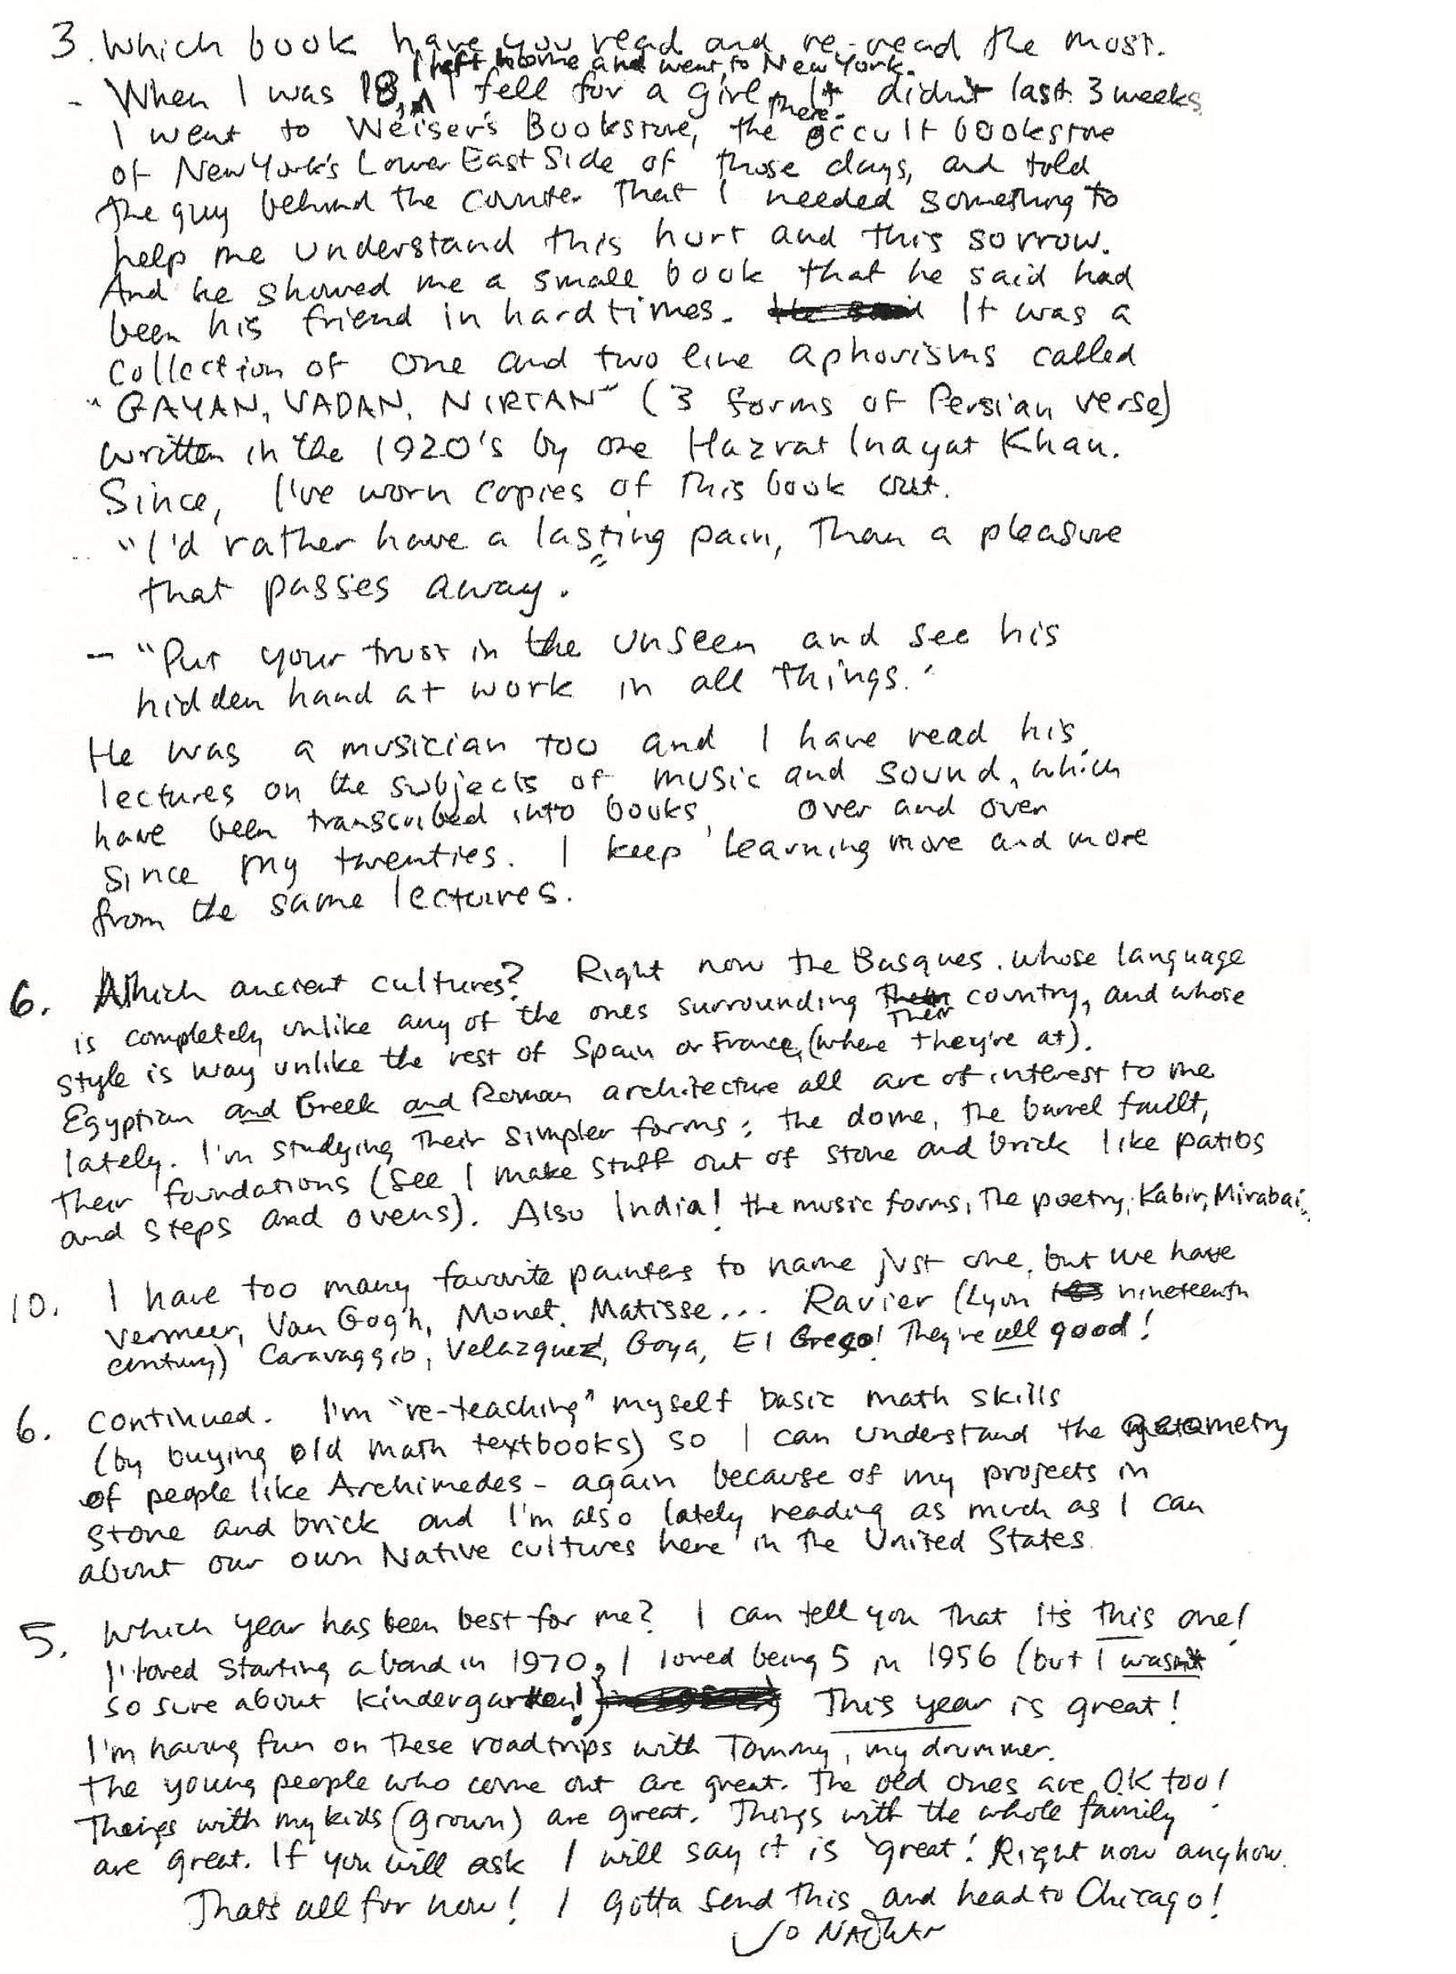 3. Which book have you read and re-read the most.
I left home and went to New York.
- When I was 18, ^ I fell for a girl there. It didn't last 3 weeks
I went to Weiser's Bookstore, the occult bookstore
of New York's Lower East Side of those days, and told
the guy behind the counter that I needed something to
help me understand this hurt and this sorrow.
And he showed me a small book that he said had
been his friend in hard times. He said It was a
collection of one and two line aphorisms called
"GAYAN, VADAN, NIRTAN" (3 forms of Persian verse)
written in the 1920's by one Hazrat Inayat Khan.
Since, I've worn copies of this book out.
"I'd rather have a lasting pain, Than a pleasure
that passes away."
- "Put your trust in the unseen and see his
hidden hand at work in all things."
He was a musician too and I have read his
lectures on the subjects of music and sound, which
have been transcribed into books, over and over
since my twenties. I keep learning more and more
from the same lectures.
6. Which ancient cultures? Right now the Basques. whose language
is completely unlike any of the ones surrounding their country, and whose
style is way unlike the rest of Spain or France, (where they're at).
Egyptian and Greek and Roman architecture all are of interest to me
lately. I'm studying their simpler forms; the dome, the barrel fault,
their foundations (see I make stuff out of stone and brick like patios
and steps and ovens). Also India! the music forms, The poetry, Kabir, Mirabai,
10. I have too many favorite painters to name just one, but we have
Vermeer, Van Gogh, Monet, Matisse... Ravier (Lyon nineteenth
century) Caravaggio, Velazquez, Goya, El Greco! They're all good!
6. continued. I'm "re-teaching" myself basic math skills
(by buying old math textbooks) so I can understand the geometry
of people like Archimedes - again because of my projects in
stone and brick and I'm also lately reading as much as I can
about our own Native cultures here in the United States.
5. Which year has been best for me? I can tell you that it's this one!
I loved starting a band in 1970, I loved being 5 in 1956 (but I wasn't
so sure about kindergarten!) This year is great!
I'm having fun on these roadtrips with Tommy, my drummer.
The young people who come out are great. The old ones are OK too!
Things with my kids (grown) are great. Things with the whole family
are great. If you will ask I will say it is 'great'! Right now anyhow.
That's all for now! I gotta send this and head to Chicago!
Jonathan